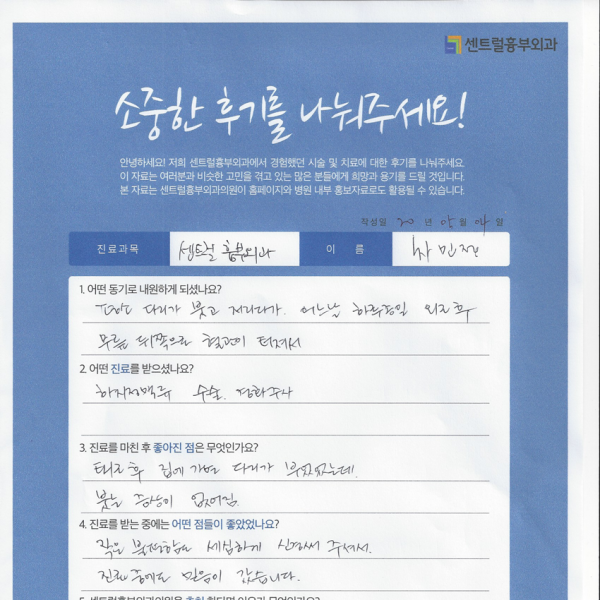 센트럴흉부외과
소중한 후기를 나눠주세요!
안녕하세요! 저희 센트럴흉부외과에서 경험했던 시술 및 치료에 대한 후기를 나눠주세요.
이 자료는 여러분과 비슷한 고민을 겪고 있는 많은 분들에게 희망과 용기를 드릴 것입니다.
본 자료는 센트럴흉부외과의원이 홈페이지와 병원 내부 홍보자료로도 활용될 수 있습니다.
작성일 20 년 월 일
진료과목 센트럴 흉부외과 이 름 차민
1. 어떤 동기로 내원하게 되셨나요?
다리가 붓고 저리다가. 어느날 하루종일 외근 후
무릎 뒤쪽으로 혈관이 터져서
2. 어떤 진료를 받으셨나요?
하지정맥류 수술. 경화주사
3. 진료를 마친 후 좋아진 점은 무엇인가요?
퇴근 후 집에 가면 다리가 부었었는데.
붓는 증상이 없어짐.
4. 진료를 받는 중에는 어떤 점들이 좋았었나요?
작은 불편함도 세심하게 신경써 주셔서.
진료 중에도 믿음이 갔습니다.